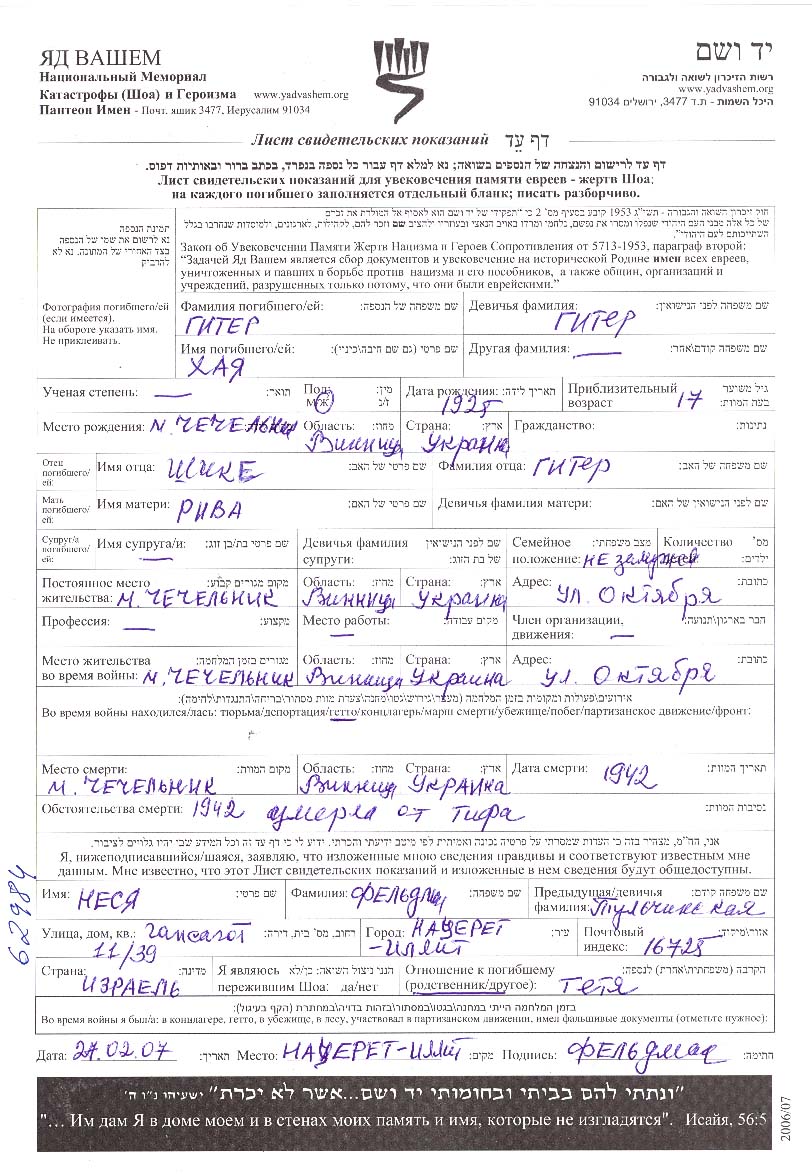 ЯД ВАШЕМ
Национальный Мемориал
Катастрофы (Шоа) и Героизма www.yadvashem.org
Пантеон Имен - Почт. ящик 3477, Иерусалим 91034
יד ושם
רשות הזיכרון לשואה ולגבורה
www.yadvashem.org
היכל השמות - ת.ד 3477, ירושלים 91034
Лист свидетельских показаний דף עֵד
דף עד לרישום והנצחה של הנספים בשואה; נא למלא דף עבור כל נספה בנפרד, בכתב ברור ובאותיות דפוס.
Лист свидетельских показаний для увековечения памяти евреев - жертв Шоа;
на каждого погибшего заполняется отдельный бланк; писать разборчиво.
תמונת הנספה
נא לרשום את שמו של הנספה
בצד האחורי של התמונה. נא לא
להדביק
חוק זיכרון השואה והגבורה - תשי"ג 1953 קובע בסעיף מס' 2 כי "תפקידו של יד ושם הוא לאסוף אל המולדת את זכרם
של כל אלה מבני העם היהודי שנפלו ומסרו את נפשם, נלחמו ומרדו באויב הנאצי ובעוזריו ולהציב שם וזכר להם, לקהילות, לארגונים, ולמוסדות שנחרבו בגלל
השתייכותם לעם היהודי".
Закон об Увековечении Памяти Жертв Нацизма и Героев Сопротивления от 5713-1953, параграф второй:
“Задачей Яд Вашем является сбор документов и увековечение на исторической Родине имен всех евреев,
уничтоженных и павших в борьбе против нацизма и его пособников, а также общин, организаций и
учреждений, разрушенных только потому, что они были еврейскими.”
Фотография погибшего/ей
(если имеется).
На обороте указать имя.
Не приклеивать.
Фамилия погибшего/ей: שם משפחה של הנספה: Девичья фамилия: שם משפחה לפני הנישואין:
ГИТЕР ГИТЕР
Имя погибшего/ей: שם פרטי (גם שם חיבה\כינוי): Другая фамилия: שם משפחה קודם\אחר:
ХАЯ
Ученая степень: תואר: Пол: м/ж מין: ז/נ Дата рождения: תאריך לידה: 1925 Приблизительный возраст 17 גיל משוער בעת המוות:
Место рождения: М. ЧЕЧЕЛЬНИК Область: מחוז: Винница Страна: ארץ: Украина Гражданство: נתינות:
Отец погибшего/ей: Имя отца: ШИКЕ שם פרטי של האב: Фамилия отца: ГИТЕР שם משפחה של האב:
Мать погибшего/ей: Имя матери: РИВА שם פרטי של האם: Девичья фамилия матери: שם משפחה לפני הנישואין של האם:
Супруг/а погибшего/ей: Имя супруга/и: שם פרטי בת/בן זוג: Девичья фамилия супруги: שם לפני הנישואין של בת הזוג: Семейное положение: מצב משפחתי: не замужем Количество מס' ילדים:
Постоянное место жительства: מקום מגורים קבוע: М. ЧЕЧЕЛЬНИК Область: מחוז: Винница Страна: ארץ: Украина Адрес: כתובת: ул. Октября
Профессия: מקצוע: Место работы: מקום עבודה: Член организации, движения: חבר בארגון\תנועה:
Место жительства во время войны: מגורים בזמן המלחמה: М. ЧЕЧЕЛЬНИК Область: מחוז: Винница Страна: ארץ: Украина Адрес: כתובת: ул. Октября
אירועים\פעולות ומקומית בזמן המלחמה (מעצר\גירוש\גטו\מחנה\צעדת מוות מסתור\בריחה\התנגדות\לחימה):
Во время войны находился/лась: тюрьма/депортация/гетто/концлагерь/марш смерти/убежище/побег/партизанское движение/фронт:
Место смерти: מקום המוות: М. ЧЕЧЕЛЬНИК Область: מחוז: Винница Страна: ארץ: УКРАИНА Дата смерти: 1942 תאריך המוות:
Обстоятельства смерти: 1942 умерла от тифа נסיבות המוות:
אני, החו"מ, מצהיר בזה כי העדות שמסרתי על פרטיה נכונה ואמיתית לפי מיטב ידיעתי והכרתי. ידוע לי כי דף עד זה וכל המידע שבו יהיו גלויים לציבור.
Я, нижеподписавшийся/шаяся, заявляю, что изложенные мною сведения правдивы и соответствуют известным мне
данным. Мне известно, что этот Лист свидетельских показаний и изложенные в нем сведения будут общедоступны.
Имя: НЕСЯ שם פרטי: Фамилия: ФЕЛЬДМАН שם משפחה: Предыдущая/девичья фамилия: Тульчинская שם משפחה קודם:
Улица, дом, кв.: 11/39 רחוב, מס' בית, דירה: Город: НАЦЕРЕТ-ИЛЛИТ עיר: Почтовый индекс: 16725
Страна: ИЗРАЕЛЬ מדינה: Я являюсь пережившим Шоа: да/нет הנני ניצול השואה: כן/לא Отношение к погибшему (родственник/другое): Тетя הקרבה (משפחתית\אחרת) לנספה:
בזמן המלחמה הייתי במחנה\בגטו\במסתור\בזהות בדויה\במחתרת (הקף בעיגול):
Во время войны я был/а: в концлагере, гетто, в убежище, в лесу, участвовал в партизанском движении, имел фальшивые документы (отметьте нужное):
Дата: 27.02.07 תאריך: Место: НАЦЕРЕТ-ИЛЛИТ מקום: Подпись: ФЕЛЬДМАН חתימה:
"ונתתי להם בביתי ובחומותי יד ושם...אשר לא יכרת" ישעיהו נ"ו ה'
"... Им дам Я в доме моем и в стенах моих память и имя, которые не изгладятся". Исайя, 56:5
62984
2006/07